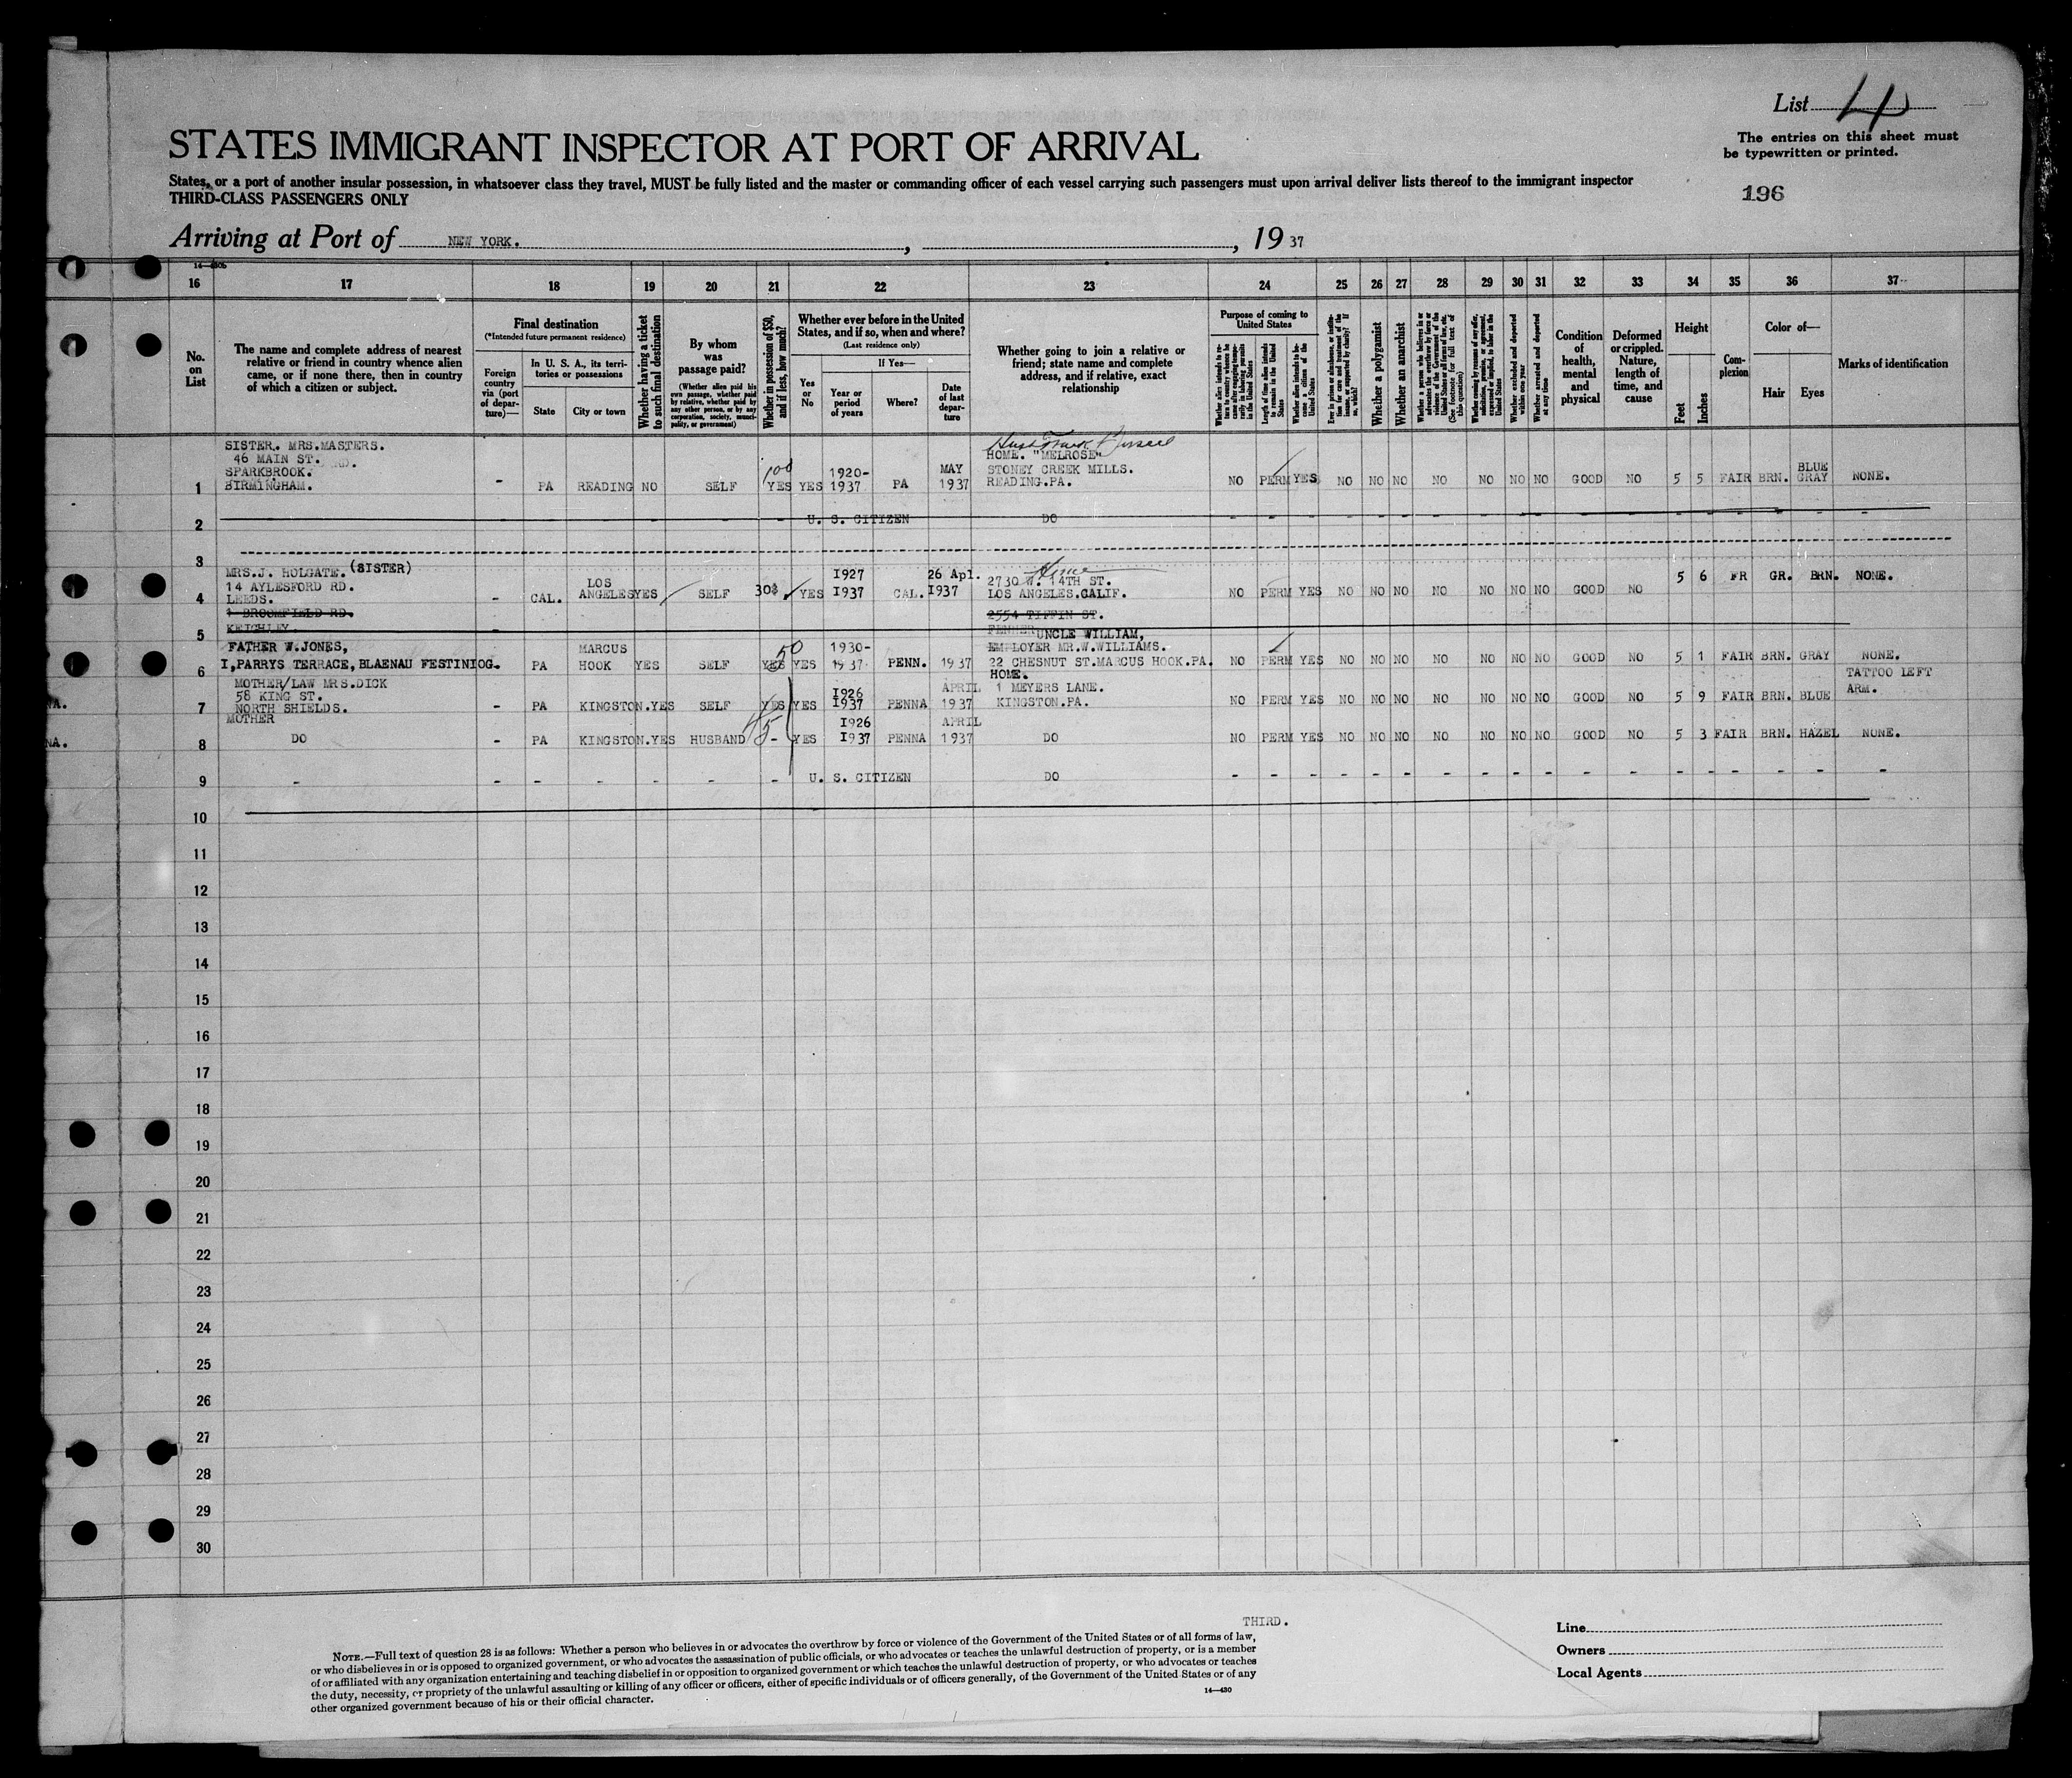 List 4
The entries on this sheet must
be typewritten or printed.
STATES IMMIGRANT INSPECTOR AT PORT OF ARRIVAL
States, or a port of another insular possession, in whatsoever class they travel, MUST be fully listed and the master or commanding officer of each vessel carrying such passengers must upon arrival deliver lists thereof to the immigrant inspector
THIRD-CLASS PASSENGERS ONLY
196
Arriving at Port of NEW YORK. , , 19 37
16 17 18 19 20 21 22 23 24 25 26 27 28 29 30 31 32 33 34 35 36 37
No. on List
The name and complete address of nearest
relative or friend in country whence alien
came, or if none there, then in country
of which a citizen or subject.
Final destination
(*Intended future permanent residence)
Foreign country via (port of departure)—
In U. S. A., its territories or possessions
State
City or town
Whether having a ticket to such final destination
By whom was passage paid?
(Whether alien paid his own passage, whether paid by relative, whether paid by any other person, or by any corporation, society, municipality, or government)
Whether in possession of $50, and if less, how much?
Whether ever before in the United
States, and if so, when and where?
(Last residence only)
If Yes—
Yes or No
Year or period of years
Where?
Date of last departure
Whether going to join a relative or
friend; state name and complete
address, and if relative, exact
relationship
Purpose of coming to United States
Whether alien intends to return to country whence he came after engaging temporarily in laboring pursuits in the United States
Length of time alien intends to remain in the United States
Whether alien intends to become a citizen of the United States
Whether a polygamist
Whether an anarchist
Whether excluded and deported within one year
Whether arrested and deported at any time
Condition of health, mental and physical
Deformed or crippled. Nature, length of time, and cause
Height
Feet
Inches
Complexion
Color of—
Hair
Eyes
Marks of identification
SISTER. MRS.MASTERS.
46 MAIN ST. RD.
SPARKBROOK.
BIRMINGHAM.
1 - PA READING NO SELF 100 YES YES 1920- 1937 PA MAY 1937
HOME. "MELROSE"
STONEY CREEK MILLS.
READING.PA.
NO PERM YES NO NO NO NO NO NO NO GOOD NO 5 5 FAIR BRN. BLUE GRAY NONE.
2 U. S. CITIZEN DO - - - - - - - - - - - - - - - -
3
MRS.J. HOLGATE. (SISTER)
14 AYLESFORD RD.
LEEDS.
1 BROOMFIELD RD.
KEIGHLEY.
4 - CAL. LOS ANGELES YES SELF 30$ YES I927 I937 CAL. 26 Apl. I937
Home
2730 W. 14TH ST.
LOS ANGELES.CALIF.
2554 TIFFIN ST.
NO PERM YES NO NO NO NO NO NO NO GOOD NO 5 6 FR GR. BRN. NONE.
5
FATHER W.JONES,
I,PARRYS TERRACE,BLAENAU FESTINIOG.
6 - PA MARCUS HOOK YES SELF 50 YES YES 1930- 1937 PENN. 1937
UNCLE WILLIAM,
EMPLOYER MR.W.WILLIAMS.
22 CHESNUT ST.MARCUS HOOK.PA.
NO PERM YES NO NO NO NO NO NO NO GOOD NO 5 1 FAIR BRN. GRAY NONE.
MOTHER/LAW MRS.DICK
58 KING ST.
NORTH SHIELDS.
7 - PA KINGSTON. YES SELF YES YES I926 I937 PENNA APRIL 1937
HOME.
1 MEYERS LANE.
KINGSTON.PA.
NO PERM YES NO NO NO NO NO NO NO GOOD NO 5 9 FAIR BRN. BLUE TATTOO LEFT ARM.
MOTHER
8 DO - PA KINGSTON. YES HUSBAND 45 - YES I926 I937 PENNA APRIL 1937 DO NO PERM YES NO NO NO NO NO NO NO GOOD NO 5 3 FAIR BRN. HAZEL NONE.
9 - - - - - - - U. S. CITIZEN DO - - - - - - - - - - - - - - - -
10
11
12
13
14
15
16
17
18
19
20
21
22
23
24
25
26
27
28
29
30
THIRD.
NOTE.—Full text of question 28 is as follows: Whether a person who believes in or advocates the overthrow by force or violence of the Government of the United States or of all forms of law,
or who disbelieves in or is opposed to organized government, or who advocates the assassination of public officials, or who advocates or teaches the unlawful destruction of property, or is a member
of or affiliated with any organization entertaining and teaching disbelief in or opposition to organized government or which teaches the unlawful destruction of property, or who advocates or teaches
the duty, necessity, or propriety of the unlawful assaulting or killing of any officer or officers, either of specific individuals or of officers generally, of the Government of the United States or of any
other organized government because of his or their official character.
14—430
Line
Owners
Local Agents